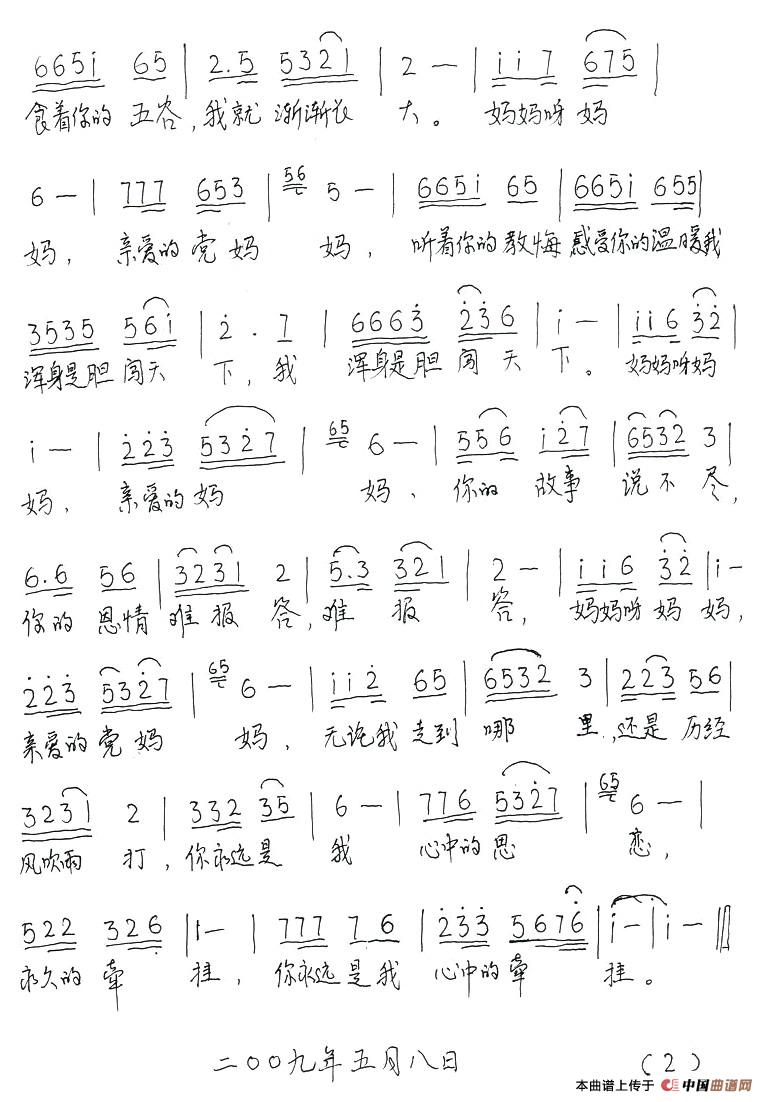 6651 65 | 2.5 5321 | 2 — | 117 675 |
食着你的 五谷,我就 渐渐长 大。 妈妈呀 妈
6 — | 777 653 | 56 5 — | 6651 65 | 6651 655 |
妈, 亲爱的 党 妈 妈, 听着你的 教悔 感受你的温暖我
3535 561 | 2 . 7 | 6663 236 | 1 — | 116 32 |
浑身是胆 闯天 下,我 浑身是胆 闯 天 下。 妈妈呀妈
1 — | 223 5327 | 65 6 — | 556 127 | 6532 3 |
妈, 亲爱的 妈 妈、 你的 故事 说不 尽,
6.6 56 | 3231 2 | 5.3 321 | 2 — | 116 32 | 1 —
你的 恩情 难报 答,难 报 答, 妈妈呀妈 妈,
223 5327 | 65 6 — | 112 65 | 6532 3 | 223 56 |
亲爱的 党 妈 妈, 无论我 走到 哪 里,还是 历经
3231 2 | 332 35 | 6 — | 776 5327 | 65 6 — |
风吹雨 打,你永远是 我 心中的 思 恋,
522 326 | 1 — | 777 76 | 233 5676 | 1 — | 1 — ‖
永久的 牵 挂, 你永远是我 心中的牵 挂。
二〇〇九年五月八日 (2)
本曲谱上传于 中国曲谱网